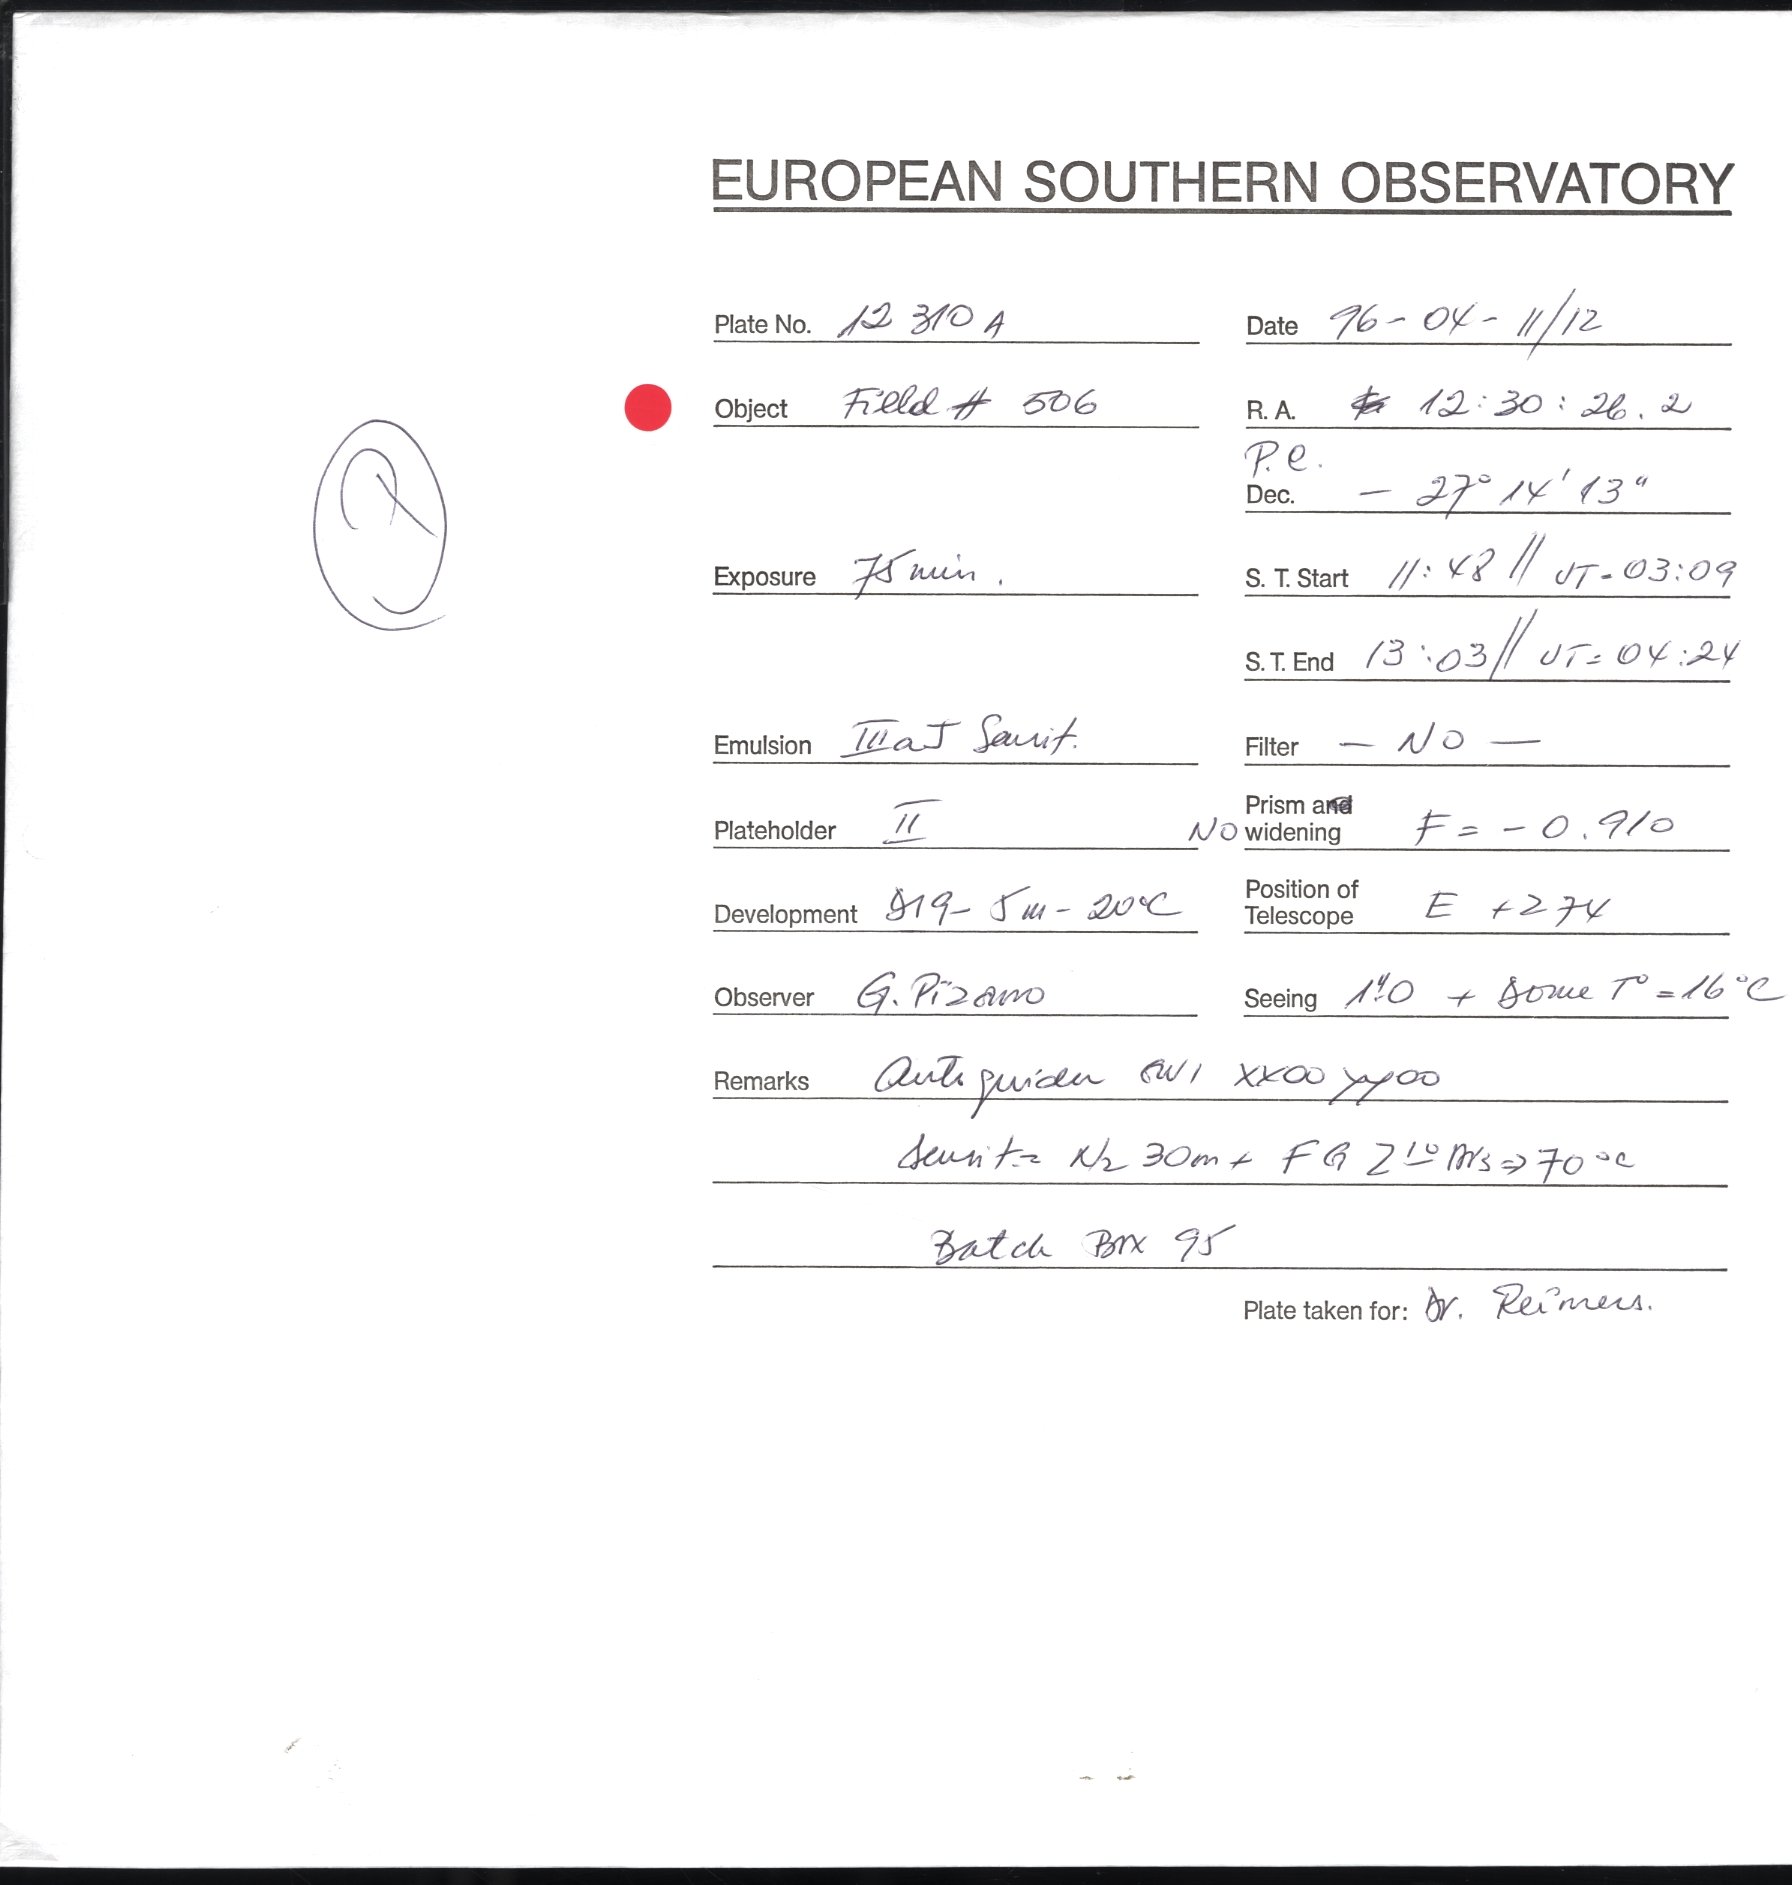 EUROPEAN SOUTHERN OBSERVATORY
Plate No. 12 310 A Date 96-04-11/12
Object Field # 506 R. A. 12:30:26.2
P.e.
Dec. - 27° 14' 13"
Exposure 75 min. S. T. Start 11:48 // UT=03:09
S. T. End 13:03 // UT=04:24
Emulsion IIIaJ Sensit. Filter - NO -
Plateholder II NO Prism and widening F = - 0.910
Development D19- 5m- 20°C Position of Telescope E +274
Observer G. Pizarro Seeing 1".0 + Dome T° = 16°C
Remarks Autoguider SW1 XX00 YY00
Sensit= N2 30m + FG 2 => 70°C
Batch Box 95
Plate taken for: Dr. Reimers.